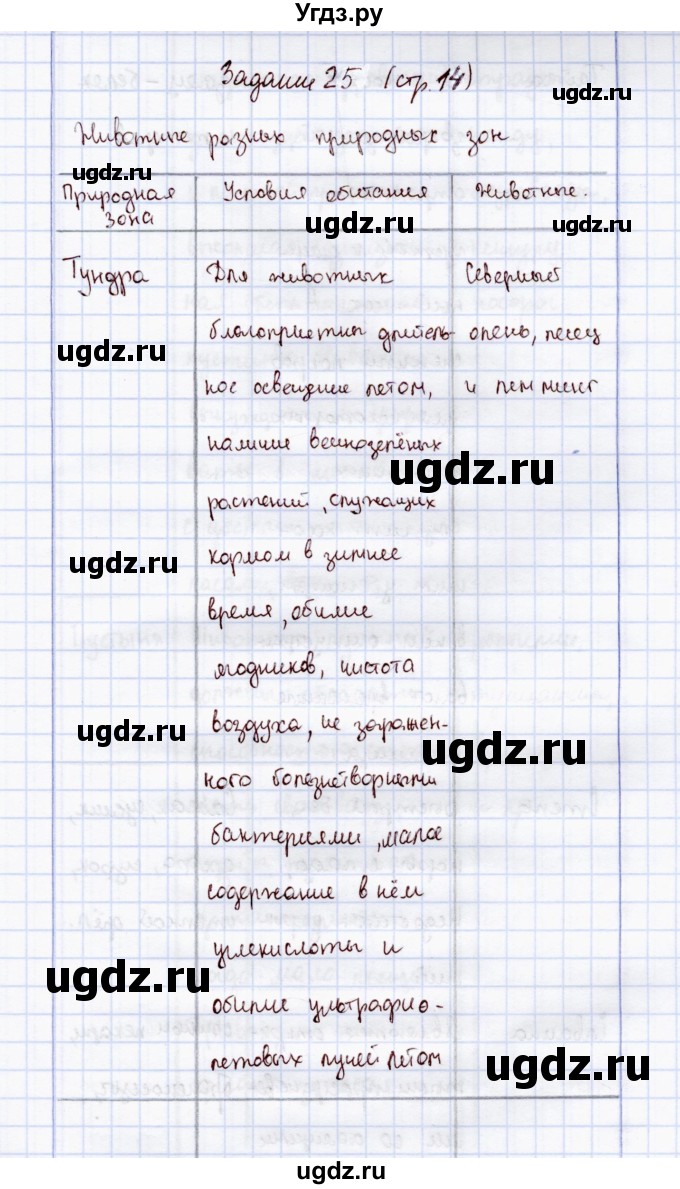 Угдз.ру
Задание 25 (стр. 14)
ugdz.ru
Животные разных природных зон
ugdz.ru
Природная зона
Условия обитания
Животные.
ugdz.ru
ugdz.ru
Тундра
Для животных
Северный
благоприятны длитель-
олень, песец
ugdz.ru
ное освещение летом,
и лемминг
наличие вечнозелёных
ugdz.ru
растений, служащих
кормом в зимнее
ugdz.ru
время, обилие
ягодников, чистота
воздуха, не заражен-
ugdz.ru
ugdz.ru
ного болезнетворными
бактериями, малое
содержание в нём
углекислоты и
ugdz.ru
обилие ультрафио-
летовых лучей летом
ugdz.ru
ugdz.ru